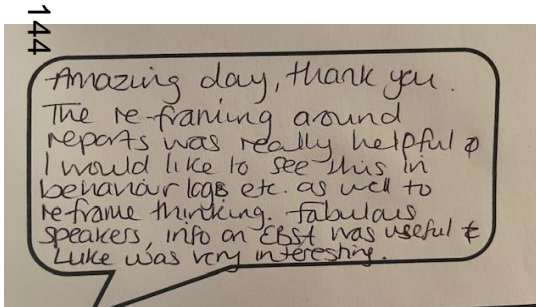 144
Amazing day, thank you.
The re-framing around
reports was really helpful &
I would like to see this in
behaviour logs etc. as well to
re-frame thinking. Fabulous
speakers, info on EBST was useful &
Luke was very interesting.